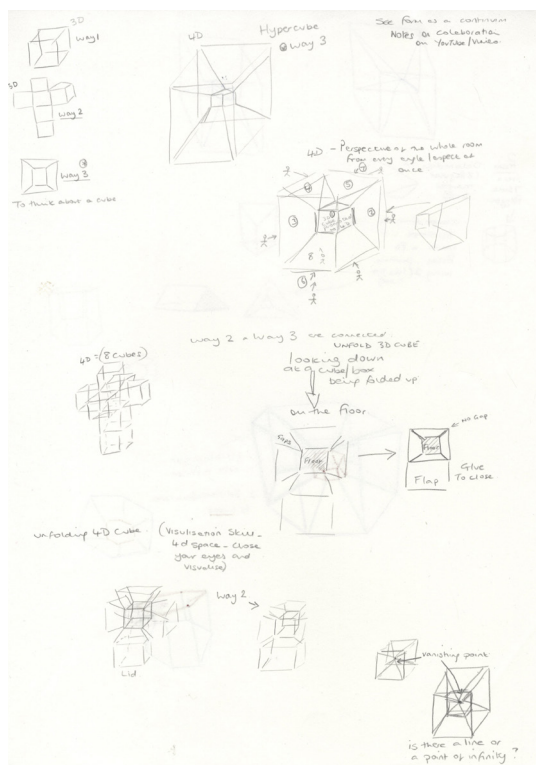 3D
way 1
3D
way 2
way 3
To think about a cube
4D
Hypercube
way 3
See form as a continuum
Notes on collaboration
on YouTube/Vimeo
4D - Perspective of the whole room
from every angle/aspect at
once
3
8
4D = (8 cubes)
way 2 + way 3 are connected
UNFOLD 3D CUBE
looking down
at a cube/box
being folded up
on the floor
gaps
Floor
no gap
Floor
Flap
Glue
To close
unfolding 4D cube.
(Visulisation Skill -
4d space - close
your eyes and
visualise)
way 2
Lid
vanishing point
is there a line or
a point of infinity?
1